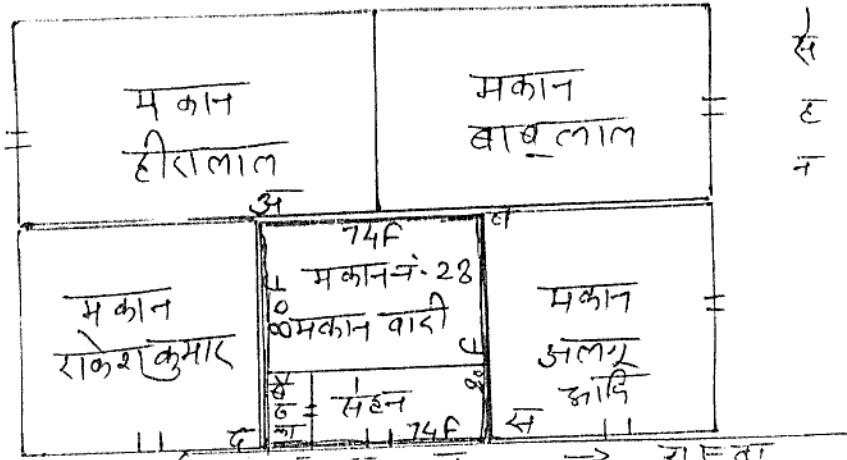 मकान
हीरालाल
मकान
बाबूलाल
सहन
अ
ब
74F
मकान नं. 23
मकान वादी
80F
90F
मकान
राकेश कुमार
मकान
अलगू
आदि
बैठका
सहन
74F
द
स
→ रास्ता